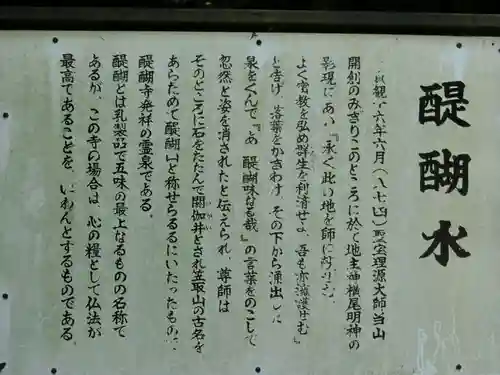 醍醐水
観十六年六月(八七四)聖宝理源大師当山
開創のみぎりこのところに於て地主神横尾明神の
影現にあい『永く此い地を師に
よく密教を弘め群生を利済せよ、吾も亦擁護せむ』
と告げ、落葉をかきわけ、その下から涌出した
泉をくんで『あゝ醍醐味なる哉』の言葉をのこして
忽然と姿を消されたと伝えられ、尊師は
そのところに石をたたんで閼伽井とされ笠取山の古名を
あらためて醍醐山と称せらるるにいたったもので
醍醐寺発祥の霊泉である。
醍醐とは乳製品で五味の最上なるものの名称で
あるが、この寺の場合は、心の糧として仏法が
最高であることを、いわんとするものである。